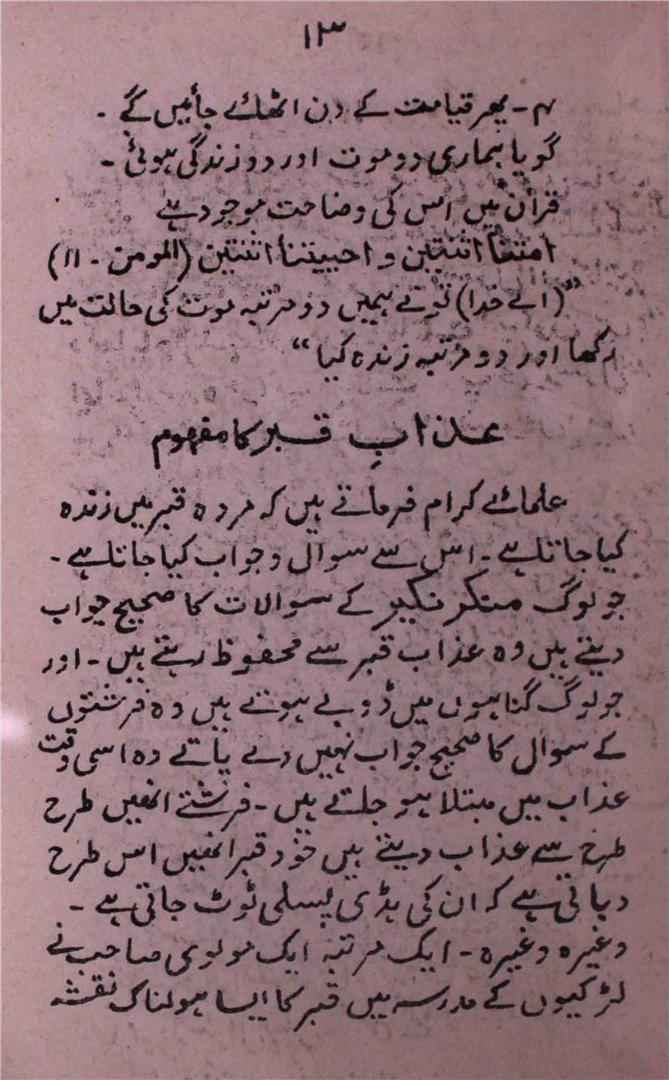 ۱۳
۴ - پھر قیامت کے دن اٹھائے جائیں گے ۔
گویا ہماری دو موت اور دو زندگی ہوئی ۔
قرآن میں اس کی وضاحت موجود ہے
امتنا اثنتین و احییتنا اثنتین (المومن - ۱۱)
”(اے خدا) تو نے ہمیں دو مرتبہ موت کی حالت میں
رکھا اور دو مرتبہ زندہ کیا“
عذابِ قبر کا مفہوم
علمائے کرام فرماتے ہیں کہ مردہ قبر میں زندہ
کیا جاتا ہے ۔ اس سے سوال و جواب کیا جاتا ہے ۔
جو لوگ منکر نکیر کے سوالات کا صحیح جواب
دیتے ہیں وہ عذاب قبر سے محفوظ رہتے ہیں ۔ اور
جو لوگ گناہوں میں ڈوبے ہوتے ہیں وہ فرشتوں
کے سوال کا صحیح جواب نہیں دے پاتے وہ اسی وقت
عذاب میں مبتلا ہو جاتے ہیں ۔ فرشتے انھیں طرح
طرح سے عذاب دیتے ہیں خود قبر انھیں اس طرح
دباتی ہے کہ ان کی ہڈی پسلی ٹوٹ جاتی ہے ۔
وغیرہ وغیرہ ۔ ایک مرتبہ ایک مولوی صاحب نے
لڑکیوں کے مدرسہ میں قبر کا ایسا ہولناک نقشہ